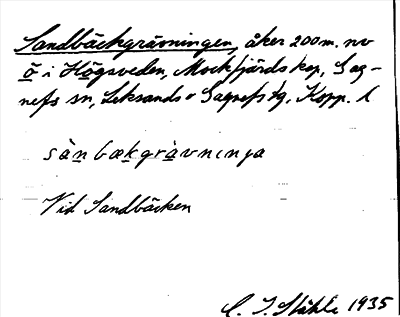 Sandbäckgrävningen, åker 200 m. nv
ö i Högsveden, Mockfjärds kap, Gag-
nefs sn, Leksands o Gagnefs tg, Kopp. l
sànbækgràvnınja
Vid Sandbäcken
C. I. Ståhle 1935